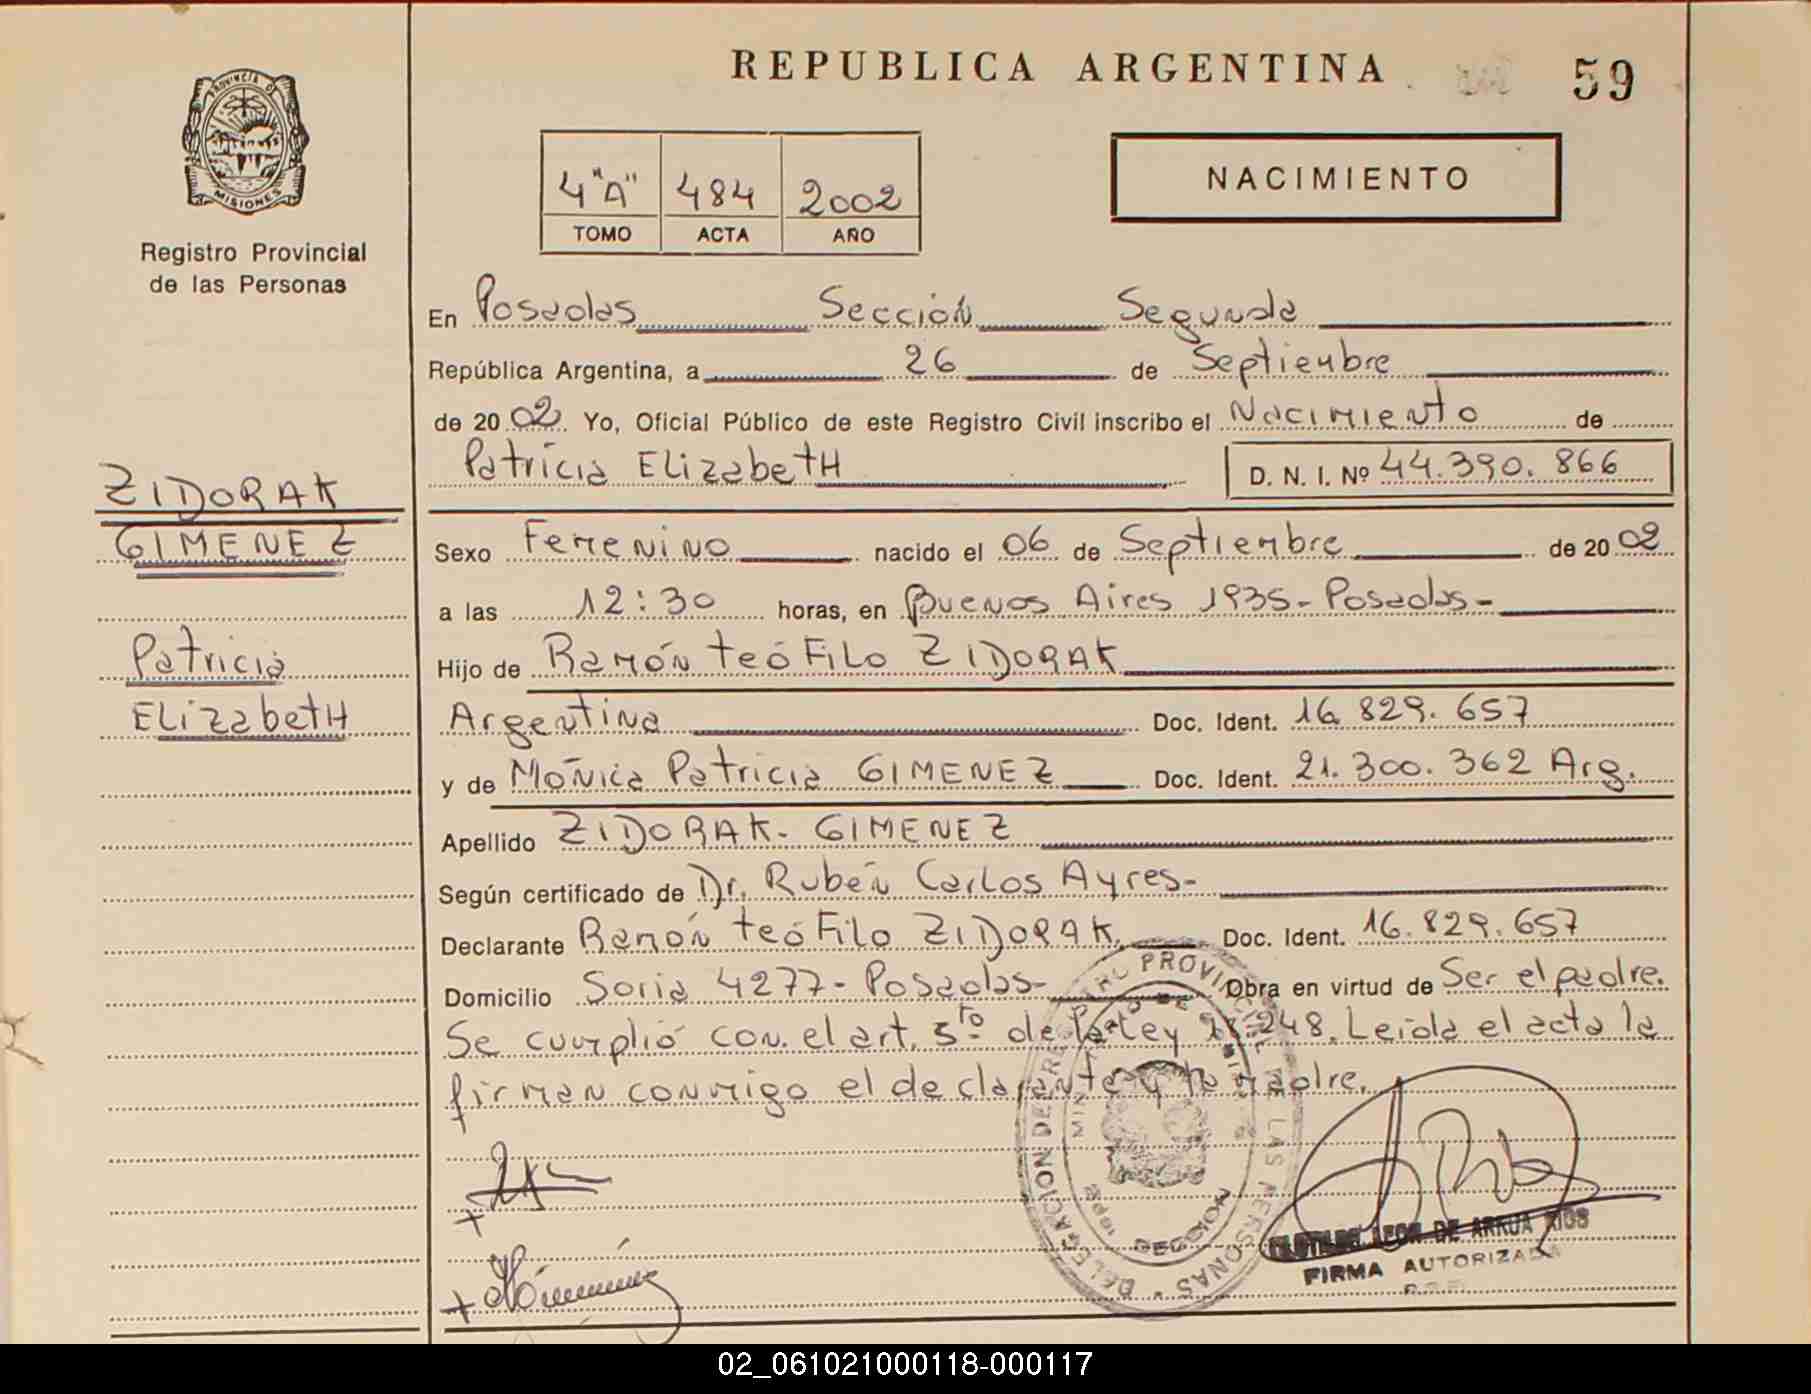 REPUBLICA ARGENTINA
59
PROVINCIA DE
MISIONES
Registro Provincial
de las Personas
4 "A" 484 2002
TOMO ACTA AÑO
NACIMIENTO
En Posadas Sección Segunda
República Argentina, a 26 de Septiembre
de 2002 Yo, Oficial Público de este Registro Civil inscribo el Nacimiento de
Patricia ElizabetH D. N. I. Nº 44.390.866
ZIDORAK
GIMENEZ
Patricia
ElizabetH
Sexo Femenino nacido el 06 de Septiembre de 2002
a las 12:30 horas, en Buenos Aires 1935- Posadas-
Hijo de Ramón Teófilo ZIDORAK
Argentina Doc. Ident. 16.829.657
y de Mónica Patricia GIMENEZ Doc. Ident. 21.300.362 Arg.
Apellido ZIDORAK- GIMENEZ
Según certificado de Dr. Rubén Carlos Ayres-
Declarante Ramón Teófilo ZIDORAK. Doc. Ident. 16.829.657
Domicilio Soria 4277- Posadas- Obra en virtud de Ser el padre.
Se cumplió con el art. 5to de la Ley 18.248. Leída el acta la
firman conmigo el declarante y la madre.
DELEGACION DE REGISTRO PROVINCIAL DE LAS PERSONAS
LEON DE ARRUA RIOS
FIRMA AUTORIZADA
02_061021000118-000117